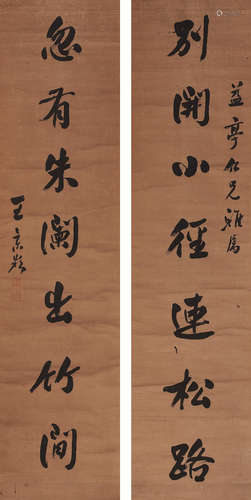 益亭仁兄雅属
別開小徑連松路
忽有朱闌出竹間
王京